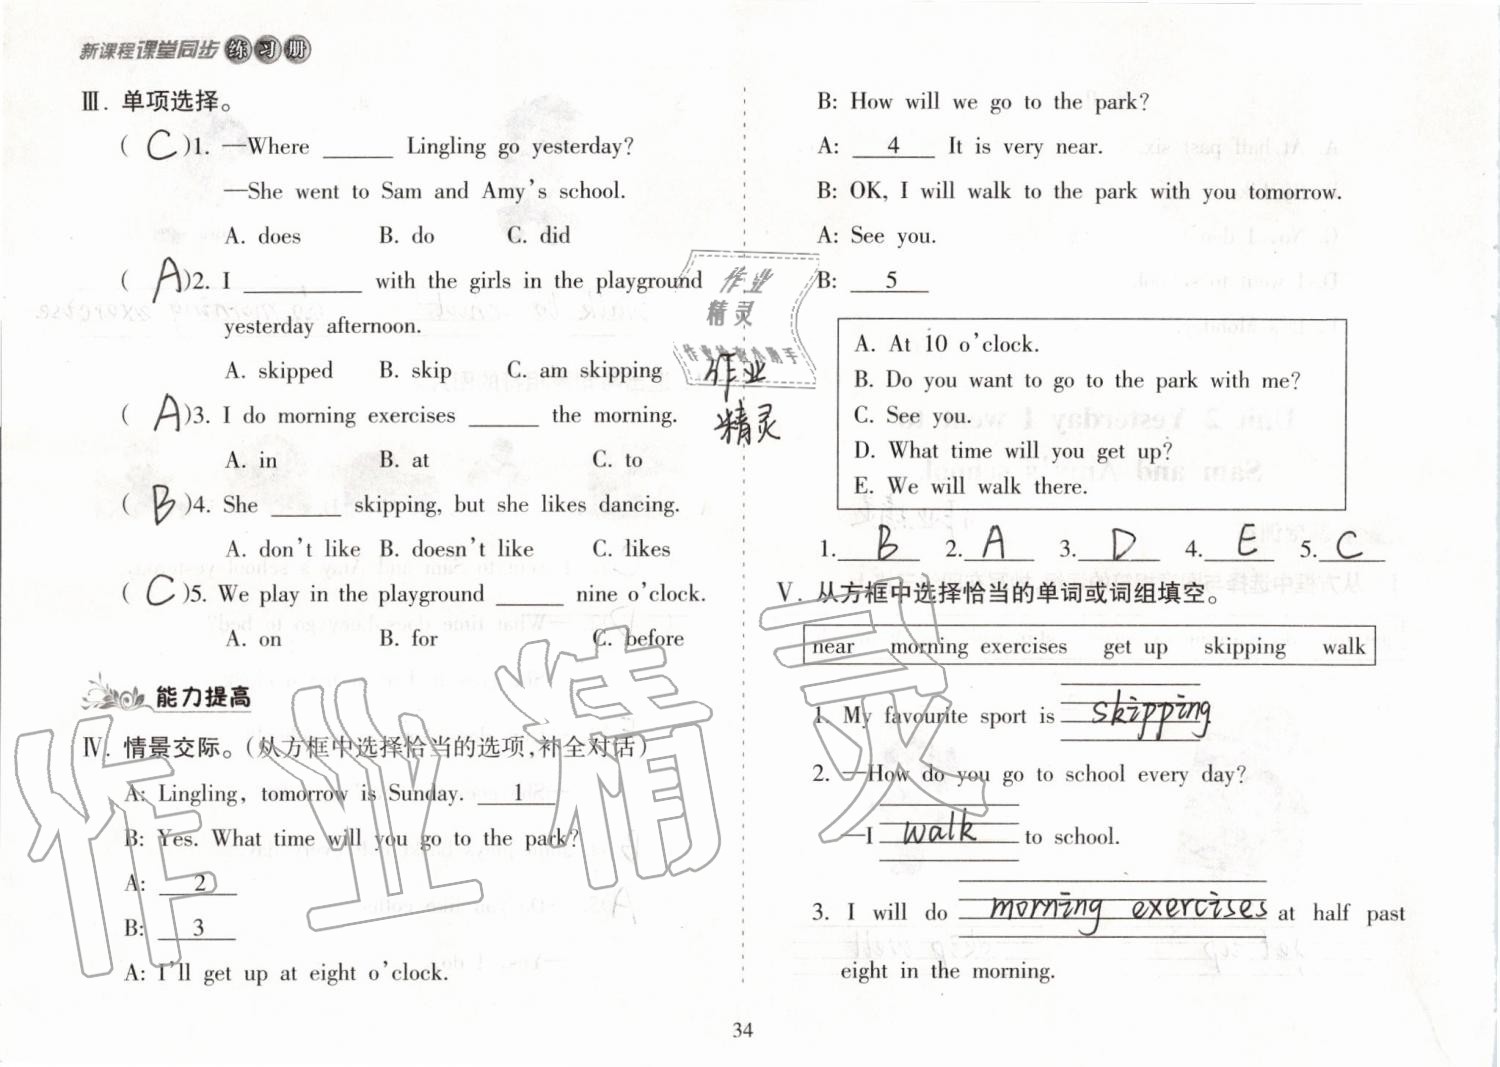 新课程课堂同步练习册
Ⅲ. 单项选择。
( C )1. —Where ______ Lingling go yesterday?
—She went to Sam and Amy's school.
A. does B. do C. did
( A )2. I __________ with the girls in the playground
yesterday afternoon.
A. skipped B. skip C. am skipping
( A )3. I do morning exercises ______ the morning.
A. in B. at C. to
( B )4. She ______ skipping, but she likes dancing.
A. don't like B. doesn't like C. likes
( C )5. We play in the playground ______ nine o'clock.
A. on B. for C. before
能力提高
Ⅳ. 情景交际。(从方框中选择恰当的选项,补全对话)
A: Lingling, tomorrow is Sunday. 1
B: Yes. What time will you go to the park?
A: 2
B: 3
A: I'll get up at eight o'clock.
B: How will we go to the park?
A: 4 It is very near.
B: OK, I will walk to the park with you tomorrow.
A: See you.
B: 5
A. At 10 o'clock.
B. Do you want to go to the park with me?
C. See you.
D. What time will you get up?
E. We will walk there.
1. B 2. A 3. D 4. E 5. C
Ⅴ. 从方框中选择恰当的单词或词组填空。
near morning exercises get up skipping walk
1. My favourite sport is skipping
2. —How do you go to school every day?
—I walk to school.
3. I will do morning exercises at half past
eight in the morning.
34
作业
精灵
作业
精灵
作业精灵